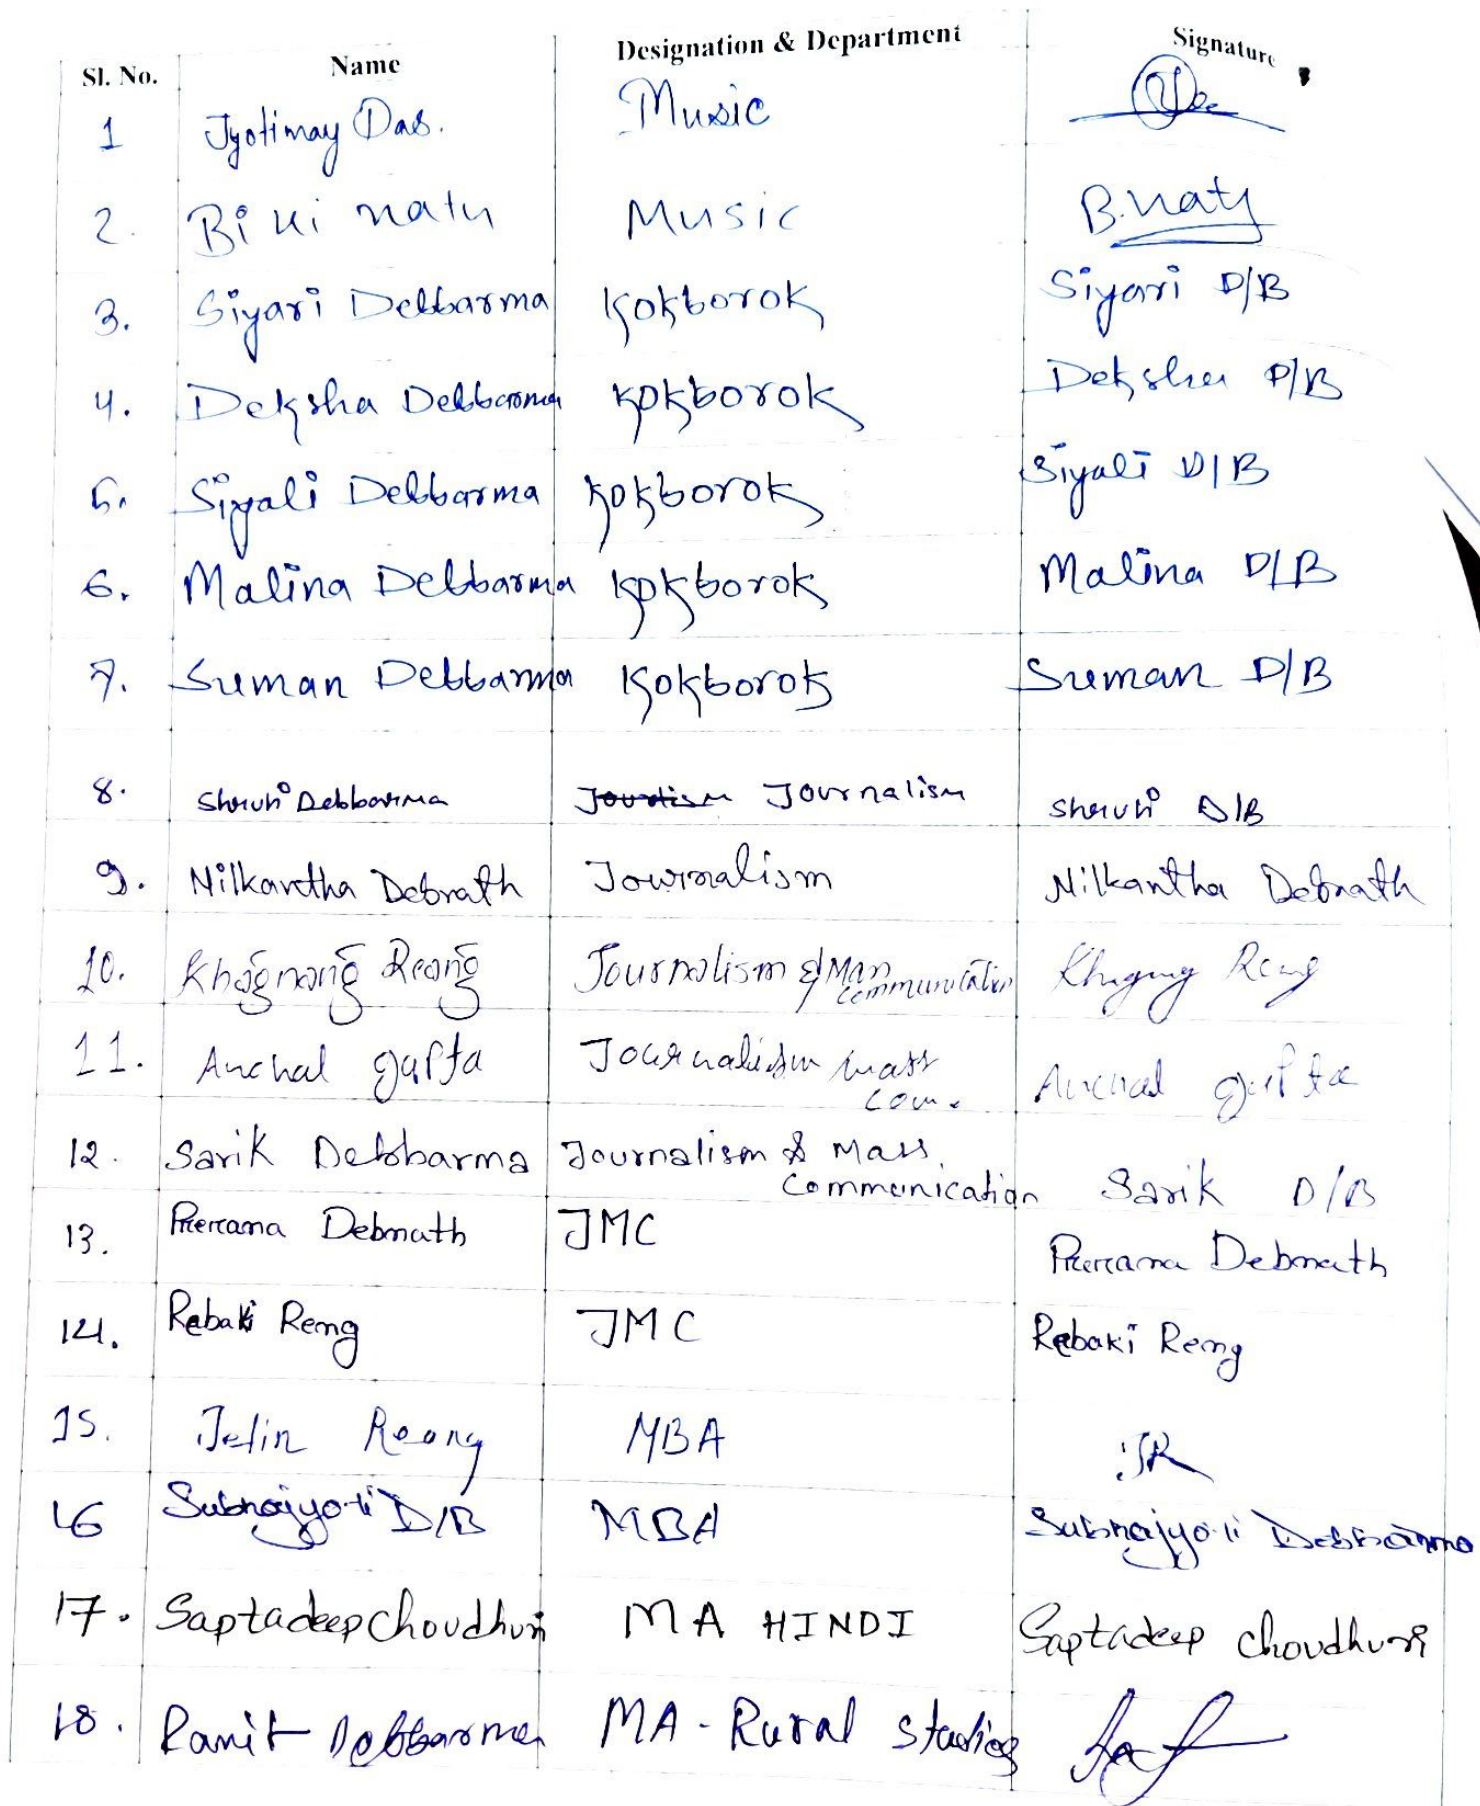 Sl. No. Name Designation & Department Signature
1 Jyotimay Das. Music
2. Biki nath Music B.nath
3. Siyari Debbarma Kokborok Siyari D/B
4. Deksha Debbarma Kokborok Deksha D/B
5. Siyali Debbarma Kokborok Siyali D/B
6. Malina Debbarma Kokborok Malina D/B
7. Suman Debbarma Kokborok Suman D/B
8. Shruti Debbarma Journalism Shruti D/B
9. Nilkantha Debnath Journalism Nilkantha Debnath
10. Khagnang Reang Journalism & Mass
Communication
11. Anchal gupta Journalism Mass Anchal gupta
Com.
12. Sarik Debbarma Journalism & Mass
Communication Sarik D/B
13. Prerana Debnath JMC Prerana Debnath
14. Rebaki Reng JMC Rebaki Reng
15. Jelin Reang MBA JR
16 Subhajyoti D/B MBA Subhajyoti Debbarma
17. Saptadeep Choudhuri MA HINDI Saptadeep Choudhuri
18. Ranit Debbarma MA - Rural Studies